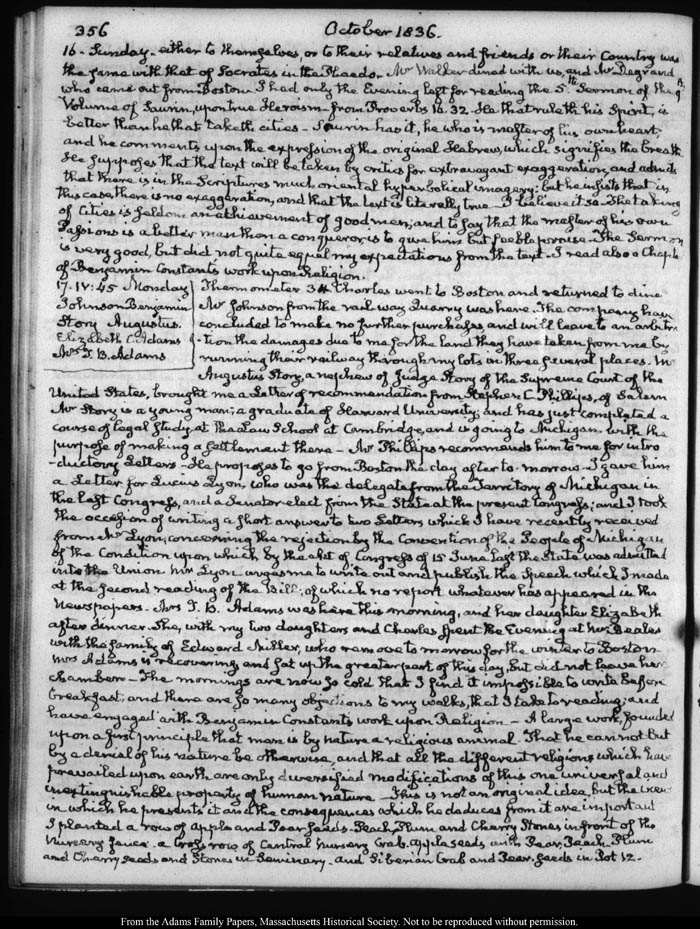 356 October 1836.
16 - Sunday - either to themselves, or to their relatives and friends or their Country was
the same with that of Socrates in the Phaedo. Mr Walker dined with us, and Mr Degrand
who came out from Boston. I had only the Evening left for reading the 5th Sermon of the 9th
Volume of Saurin, upon true Heroism - from Proverbs 16.32. He that ruleth his Spirit, is
better than he that taketh cities - Saurin has it, he who is master of his own heart,
and he comments upon the expression of the original Hebrew, which signifies the breath
He supposes that the text will be taken by critics for extravagant exaggeration, and admits
that there is in the Scriptures much oriental hyperbolical imagery; but he insists that in
this case, there is no exaggeration, and that the text is literally true - I believe it so. The taking
of Cities is seldom an achievement of good men, and to say that the master of his own
Passions is a better man than a conqueror, is to give him but feeble praise. The Sermon
is very good, but did not quite equal my expectations from the text - I read also a Chapte
of Benjamin Constant's work upon Religion.
17. IV:45 Monday Thermometer 34 Charles went to Boston and returned to dine
Johnson Benjamin Mr Johnson from the rail-way Quarry was here. The company have
Story Augustus. concluded to make no further purchases, and will leave to an arbitra
Elizabeth C. Adams -tion the damages due to me for the land they have taken from me by
Mrs T. B. Adams running their railway through my lots in three several places. Mr
Augustus Story, a nephew of Judge Story of the Supreme Court of the
United States, brought me a Letter of recommendation from Stephen C. Phillips, of Salem
Mr Story is a young man; a graduate of Harvard University; and has just completed a
course of legal study at the Law School at Cambridge, and is going to Michigan with the
purpose of making a settlement there - Mr Phillips recommends him to me for intro
-ductory Letters - He proposes to go from Boston the day after to-morrow. I gave him
a Letter for Lucius Lyon, who was the delegate from the Territory of Michigan in
the last Congress, and a Senator elect from the State at the present Congress; and I took
the occasion of writing a short answer to two Letters which I have recently received
from Mr Lyon, concerning the rejection by the Convention of the People of Michigan
of the Condition upon which by the act of Congress of 15 June last the State was admitted
into the Union Mr Lyon urges me to write out and publish the Speech which I made
at the second reading of the Bill; of which no report whatever has appeared in the
Newspapers. Mrs T. B. Adams was here this morning, and her daughter Elizabeth
after dinner. She, with my two daughters and Charles spent the Evening at Mrs Beales
with the family of Edward Miller, who remove to morrow for the winter to Boston
Mrs Adams is recovering and sat up the greater part of this day, but did not leave her
chamber - The mornings are now so cold that I find it impossible to write before
breakfast; and there are so many objections to my walks, that I take to reading; and
have engaged with Benjamin Constant's work upon Religion - A large work, founded
upon a first principle that man is by nature a religious animal. That he cannot but
by a denial of his nature be otherwise, and that all the different religions which have
prevailed upon earth are only diversified modifications of this one universal and
inextinguishable property of human nature - This is not an original idea, but the view
in which he presents it and the consequences which he deduces from it are important
I planted a row of apple and Pear seeds. Peach, Plum and Cherry Stones in front of the
Nursery fence. a cross row of Central Nursery Crab, apple seeds with Pear, Peach, Plum
and Cherry seeds and Stones in Seminary - and Siberian Crab and Pear seeds in Pot 12.
From the Adams Family Papers, Massachusetts Historical Society. Not to be reproduced without permission.